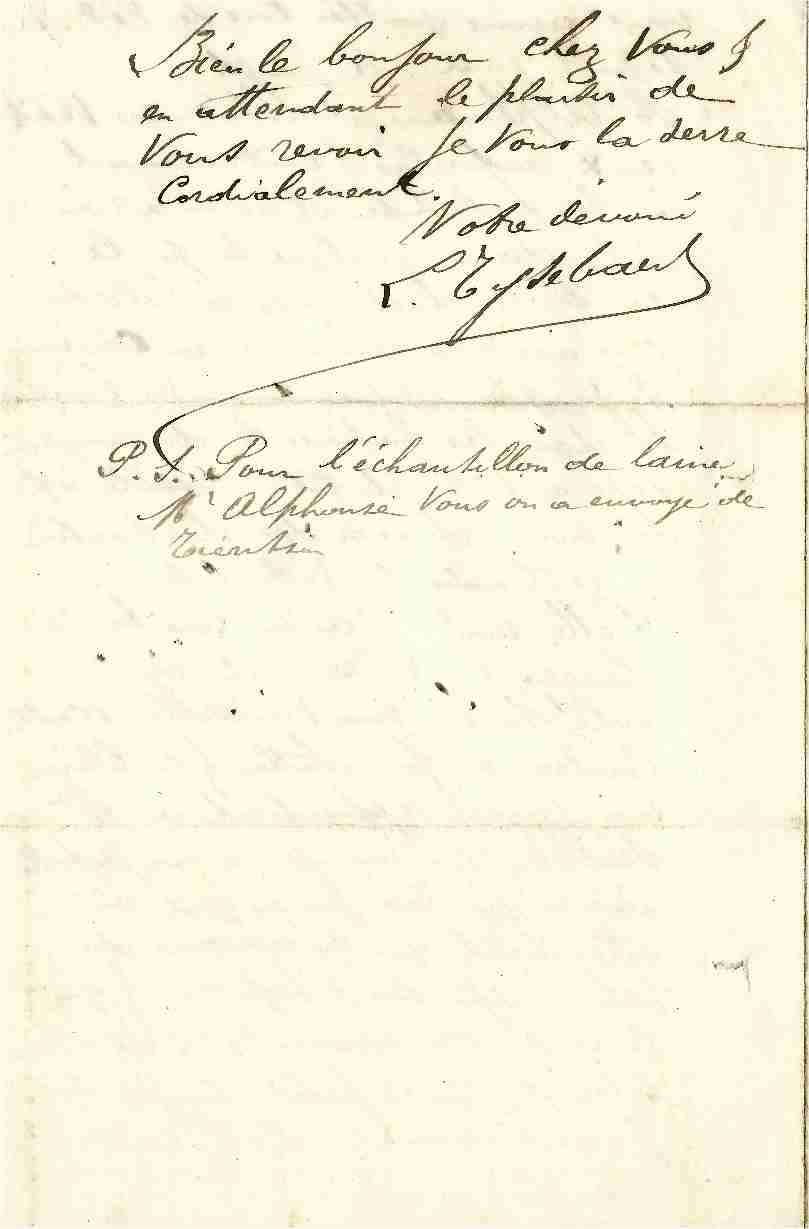 Bien le bonjour chez Vous &
en attendant le plaisir de
Vous revoir Je Vous la serre
Cordialement.
Votre dévoué
L. Tysebaert
P.S. Pour l'échantillon de laine
Mr Alphonse Vous en a envoyé de
Tientsin